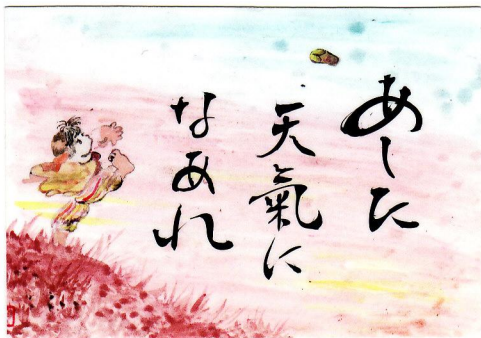 あした
天氣に
なあれ